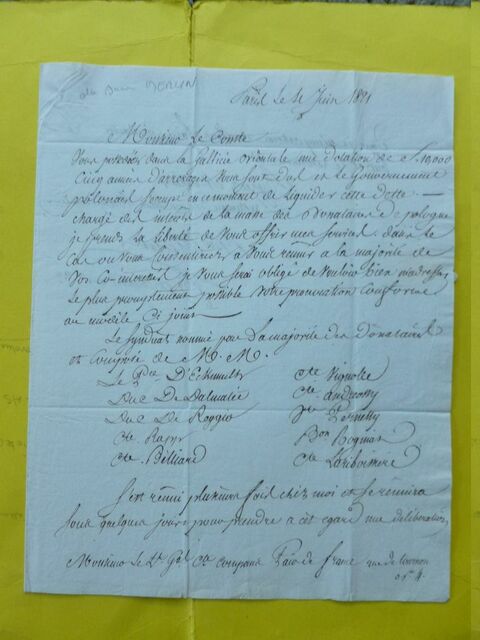 Paris le 11 Juin 1821
Monsieur Le Comte
Vous possédez dans la Gallicie orientale une dotation de f. 10,000
Cinq années d'arrérages vous sont dus et le Gouvernement
polonais s'occupe en ce moment de liquider cette dette —
chargé des intérêts de la masse des Donataires de pologne
je prends la liberté de vous offrir mes services. dans le
cas ou vous consentiriez a vous réunir a la majorité de
vos Co-interessés je vous serai obligé de vouloir bien m'adresser
Le plus promptement possible votre procuration conforme
au modèle ci joint
Le syndicat nommé par la majorité des Donataires
et composé de M. M.
Le Pce D'Eckmulh
Duc De Dalmatie
Duc De Reggio
Cte Rapp
Cte Belliard
Cte Vignolle
Cte andreossy
Pernetty
Bon Rogniat
Cte Lariboissiere
s'est réuni plusieurs fois chez moi et se réunira
sous quelques jours pour prendre a cet egard une déliberation,
Monsieur le Lt Gal Cte compans Pair de france rue de tournon
n° 4.